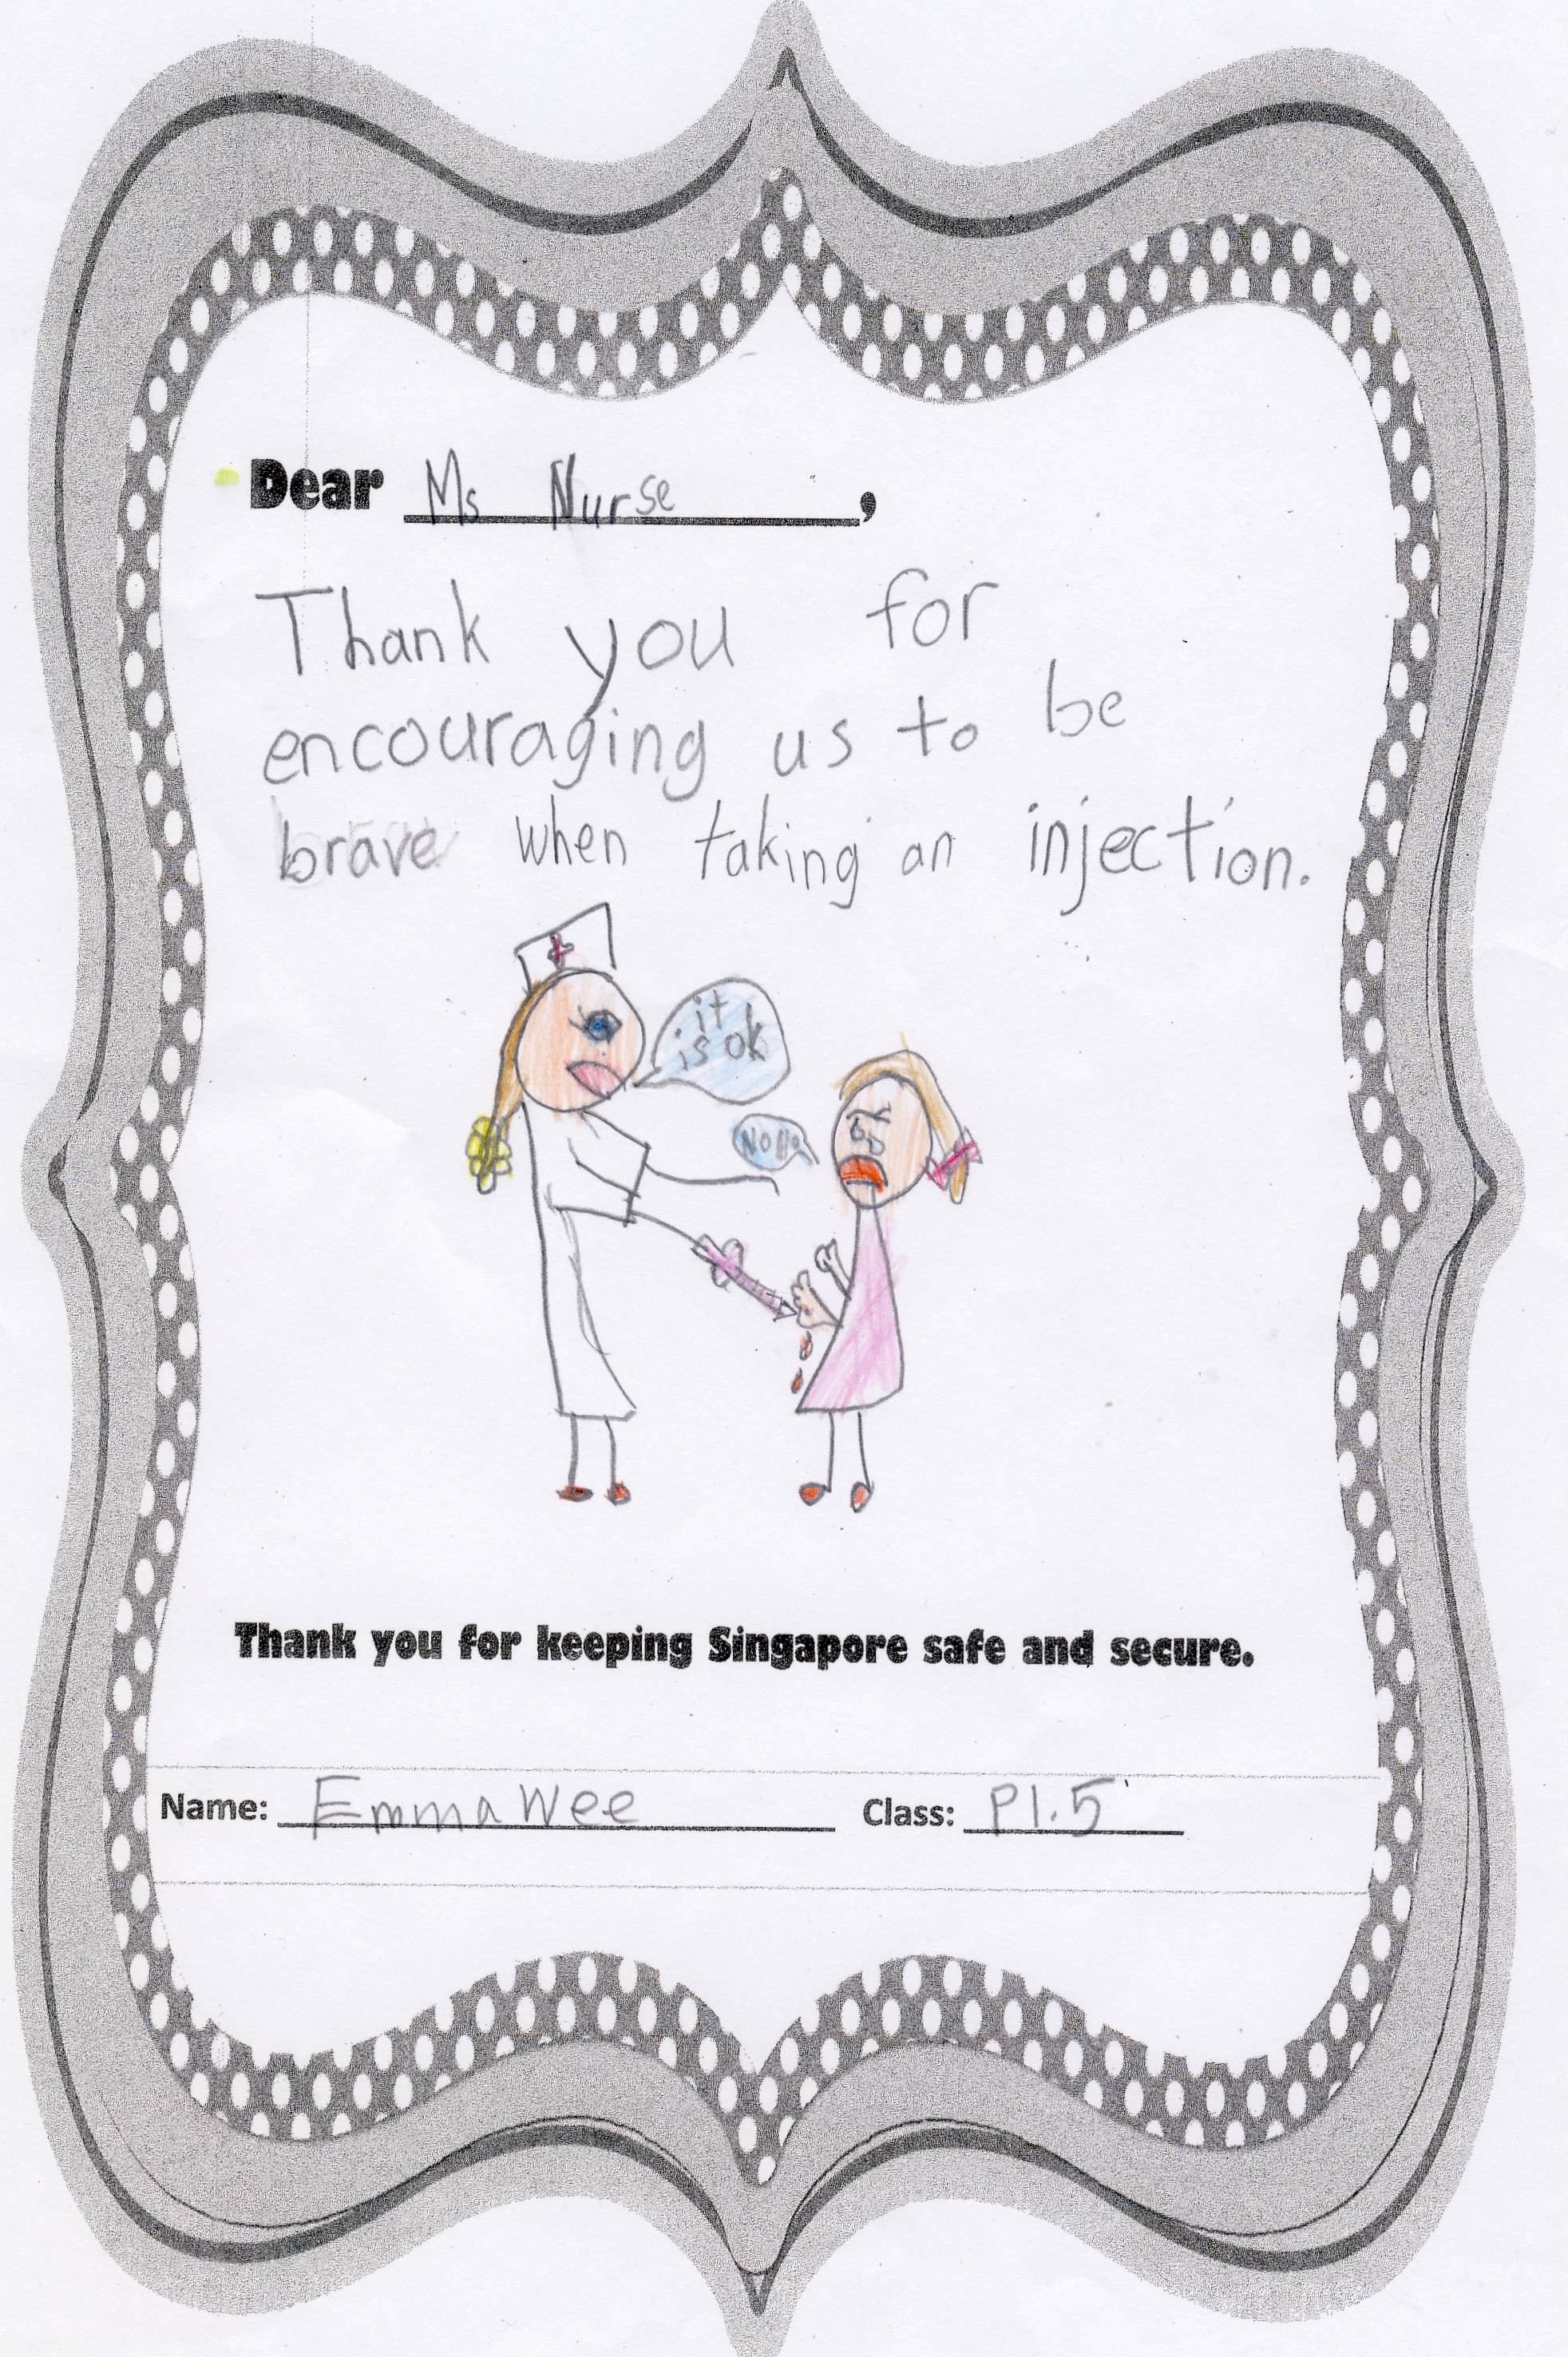 Dear Ms Nurse,
Thank you for
encouraging us to be
brave when taking an injection.
it
is ok
No No
Thank you for keeping Singapore safe and secure.
Name: Emma Wee Class: P1.5